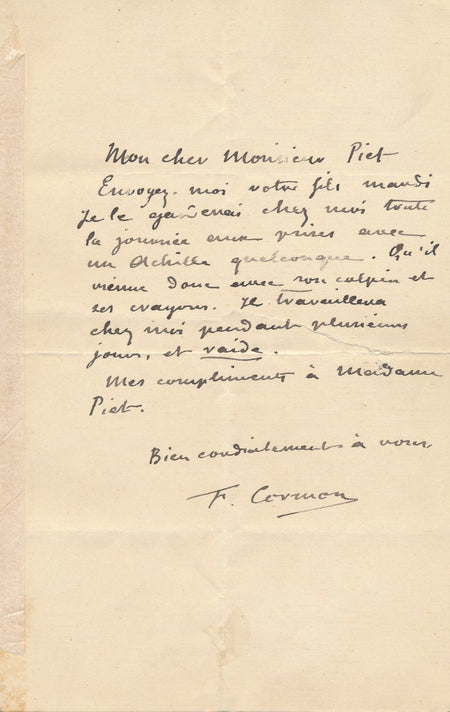 Mon cher Monsieur Piet
Envoyez-moi votre fils mardi
Je le garderai chez moi toute
la journée aux prises avec
un Achille quelconque. Qu'il
vienne donc avec son calepin et
ses crayons. Il travaillera
chez moi pendant plusieurs
jours, et raide.
Mes compliments à Madame
Piet.
Bien cordialement à vous
F. Cormon